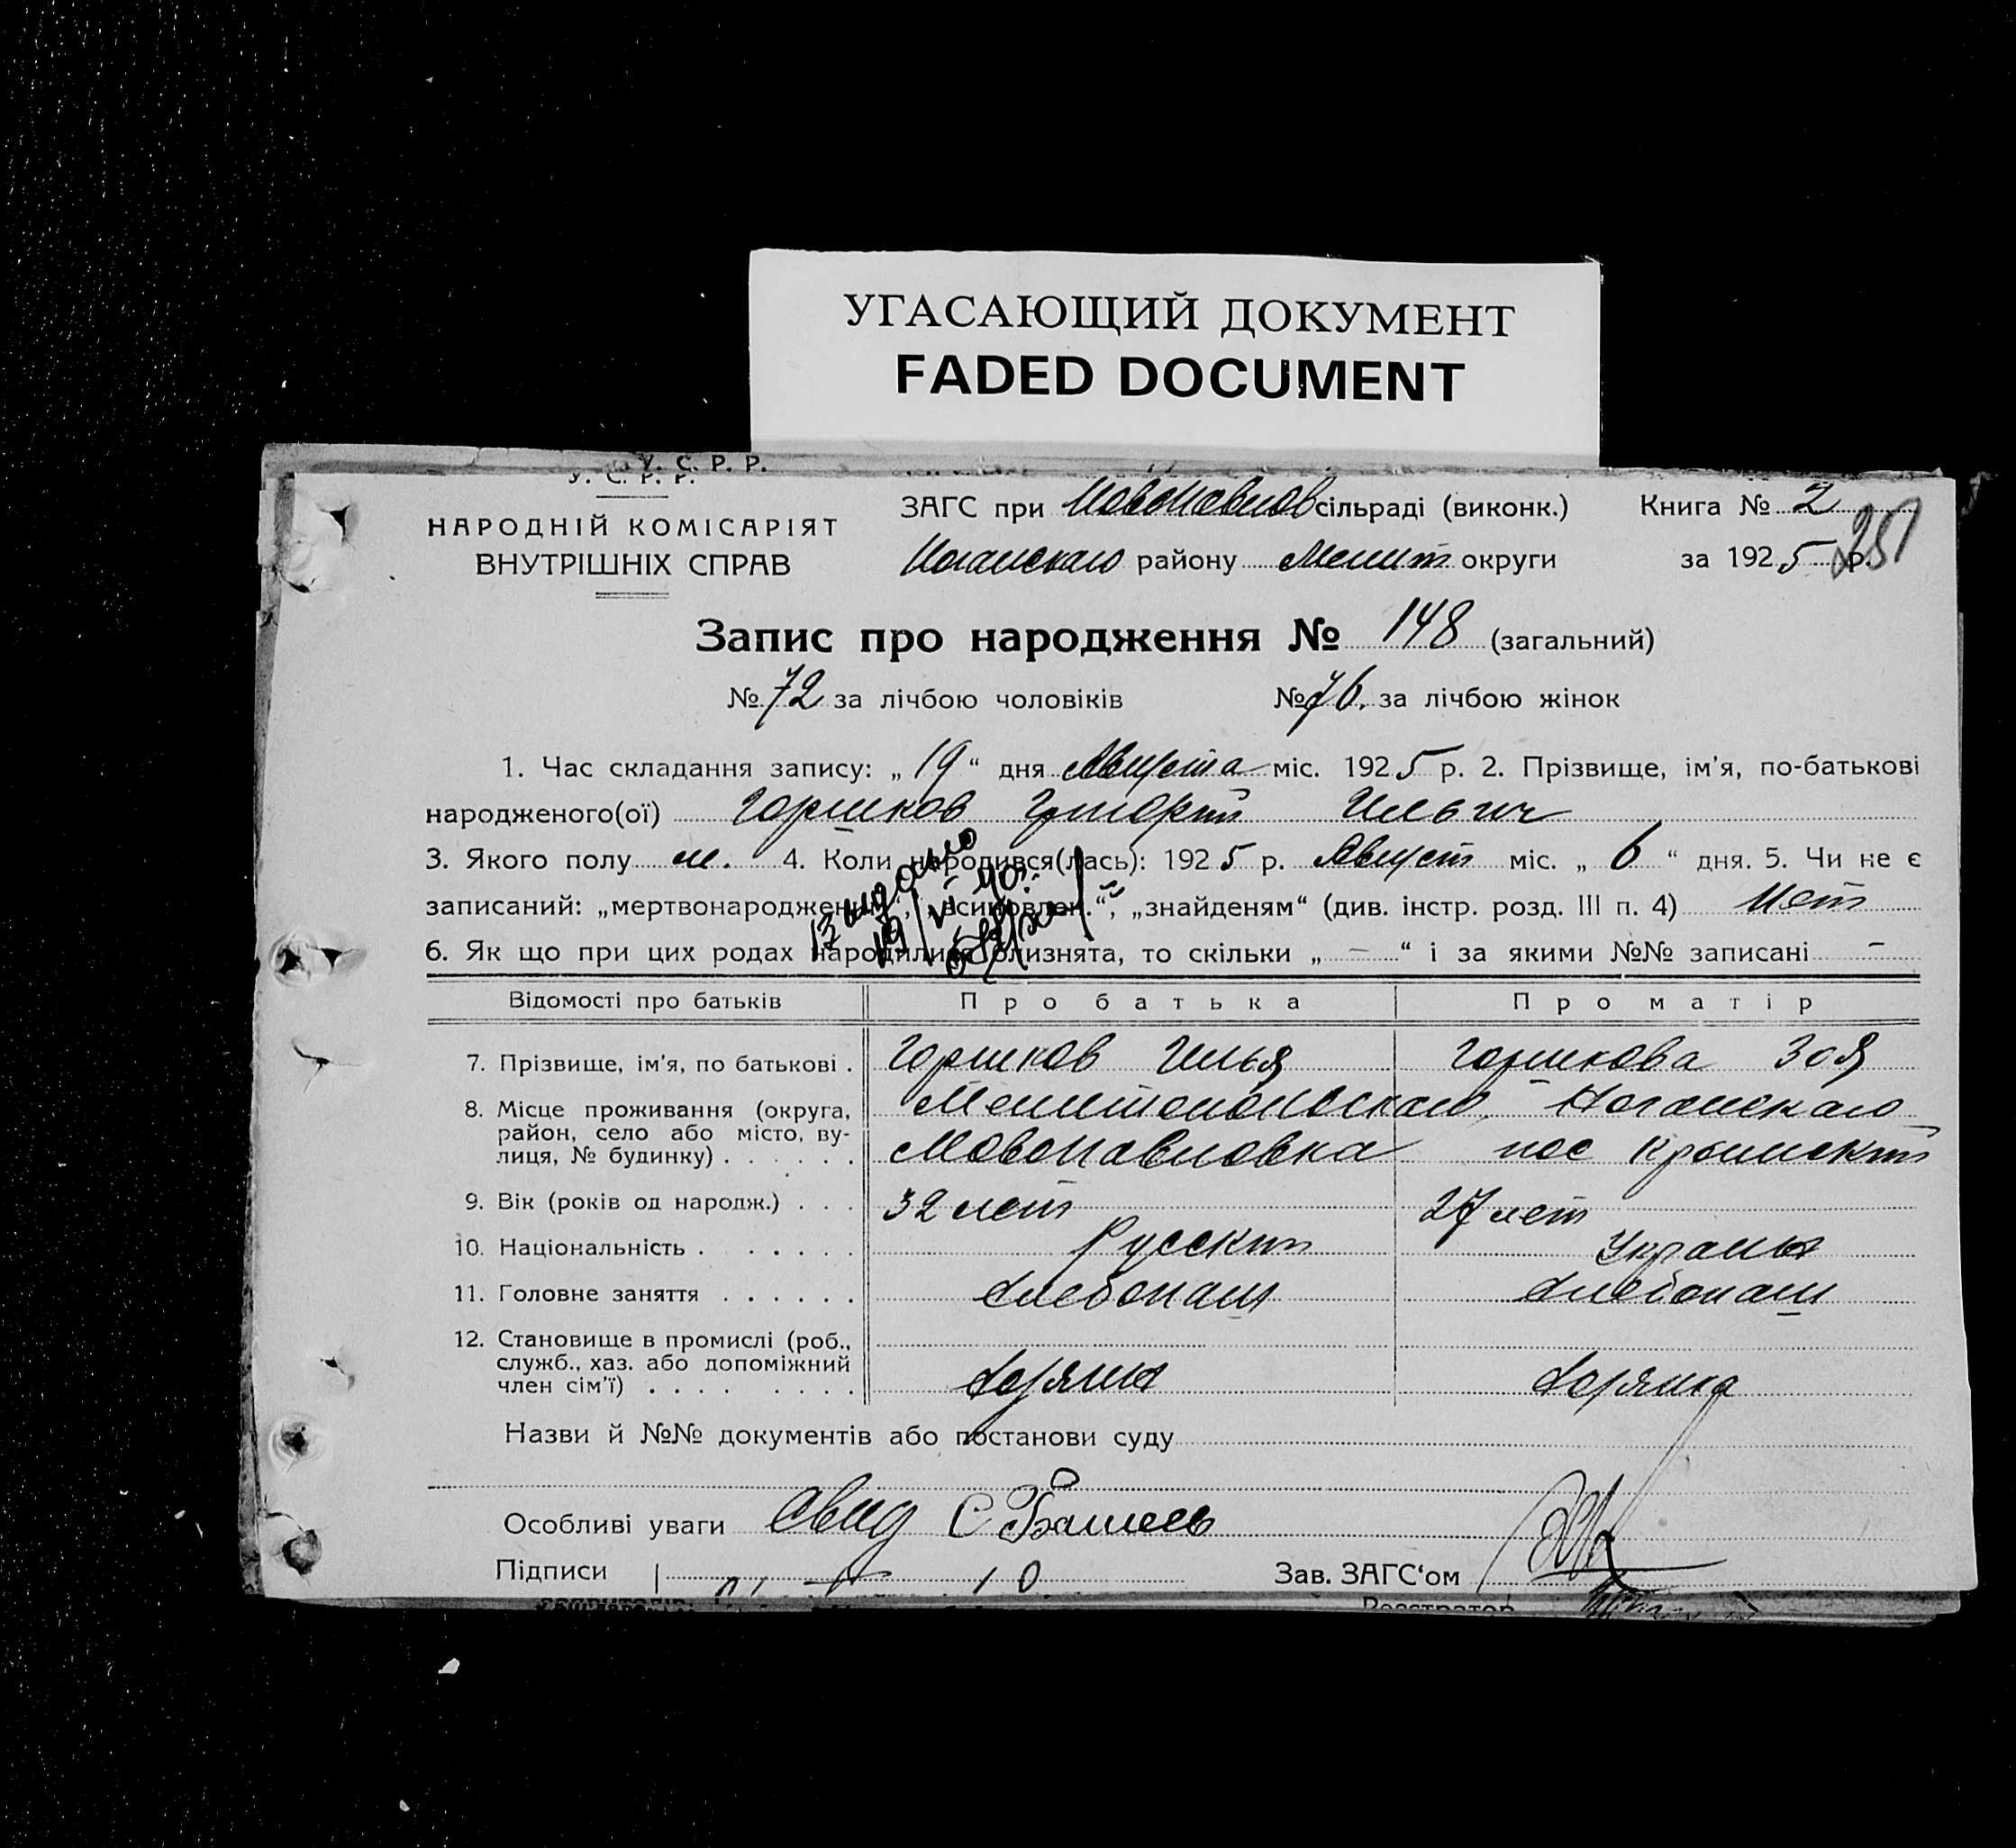 УГАСАЮЩИЙ ДОКУМЕНТ
FADED DOCUMENT
У. С. Р. Р.
У. С. Р. Р.
НАРОДНІЙ КОМІСАРІЯТ
ВНУТРІШНІХ СПРАВ
ЗАГС при Новопавлов сільраді (виконк.) Книга № 2
Ногайскаго району Мелит округи за 1925 р. 251
Запис про народження № 148 (загальний)
№ 72 за лічбою чоловіків № 76. за лічбою жінок
1. Час складання запису: „19“ дня Августа міс. 1925 р. 2. Прізвище, ім'я, по-батькові
народженого(ої) Горшков Григорій Ильич
3. Якого полу м. 4. Коли народився(лась): 1925 р. Август міс. „6“ дня. 5. Чи не є
записаний: „мертвонародженим“, „всиновлен.“, „знайденям“ (див. інстр. розд. III п. 4) Нет
6. Як що при цих родах народились близнята, то скільки „ – “ і за якими №№ записані –
Відомості про батьків Про батька Про матір
7. Прізвище, ім'я, по батькові . Горшков Илья Горшкова Зоя
8. Місце проживання (округа, район, село або місто, вулиця, № будинку) . . . . . . Мелитопольскаго, Ногайскаго
Новопавловка пос Крымский
9. Вік (років од народж.) . . . 32 лет 27 лет
10. Національність . . . . . . Русский Украинка
11. Головне заняття . . . . . . Хлебопаш Хлебопаш
12. Становище в промислі (роб., служб., хаз. або допоміжний член сім'ї) . . . . . . . .
Назви й №№ документів або постанови суду
Особливі уваги Свид С
Підписи Зав. ЗАГС'ом
Реєстратор